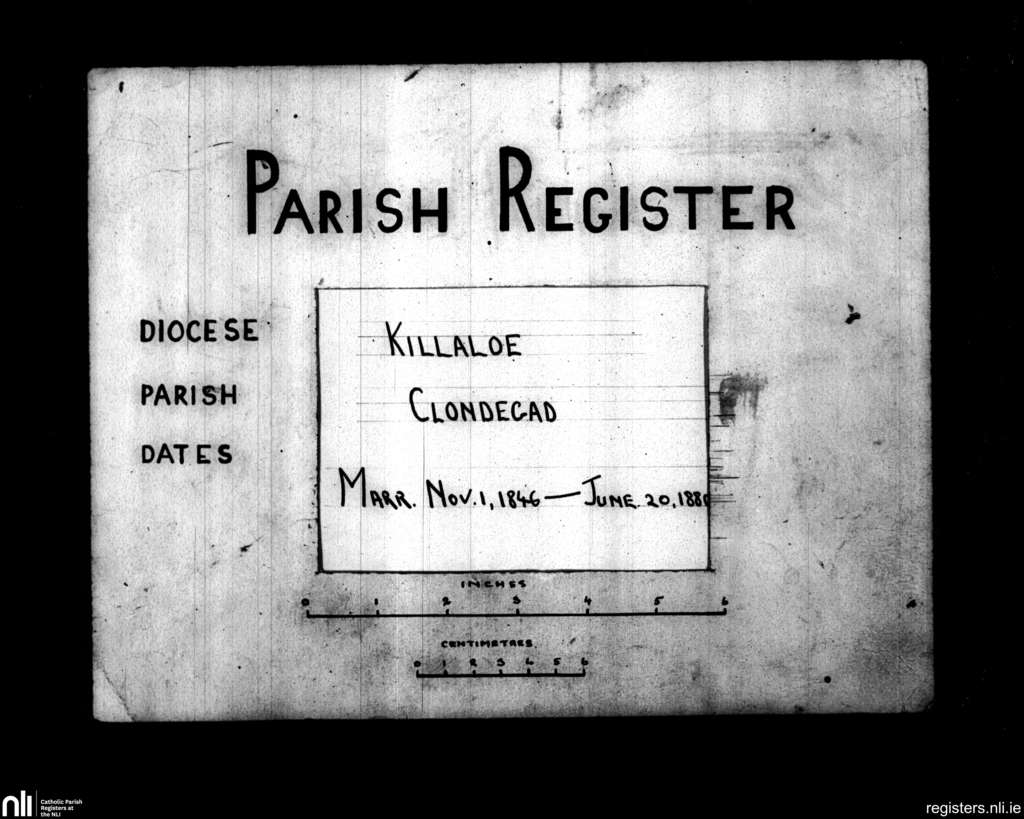 PARISH REGISTER
DIOCESE KILLALOE
PARISH CLONDEGAD
DATES MARR. NOV. 1, 1846 — JUNE. 20, 1880
INCHES
0 1 2 3 4 5 6
CENTIMETRES
0 1 2 3 4 5 6
nli Catholic Parish
Registers at
the NLI
registers.nli.ie